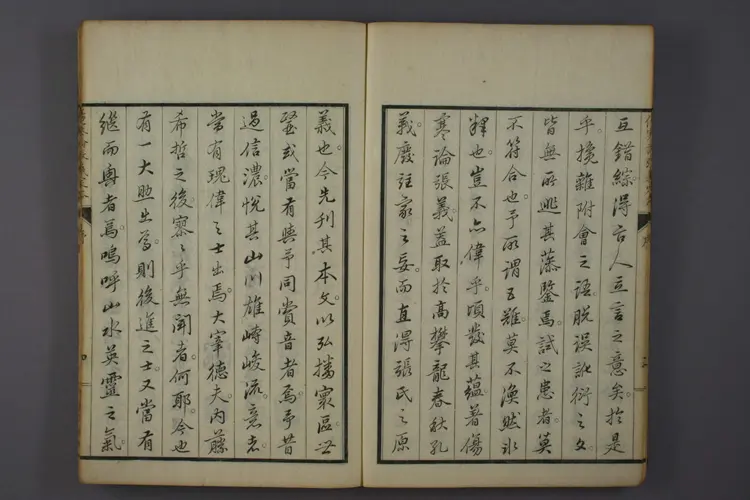 互錯綜得古人立言之意矣於是
乎攙雜附會之語脱誤訛衍之文
皆無所逃其藻鑒焉試之患者莫
不符合也予所謂五難莫不渙然氷
釋也豈不亦偉乎頃發其蘊著傷
寒論張義蓋取於高攀龍春秋孔
義廢註家之妄而直得張氏之原
義也今先刊其本文以弘播寰區世
毉或當有與予同賞音者焉予昔
過信濃悅其山川雄峙峻流意者
當有瑰偉之士出焉大宰德夫內藤
希哲之後寥寥乎無聞者何耶今也
有一大助出焉則後進之士又當有
繼而興者焉嗚呼山水英靈之氣